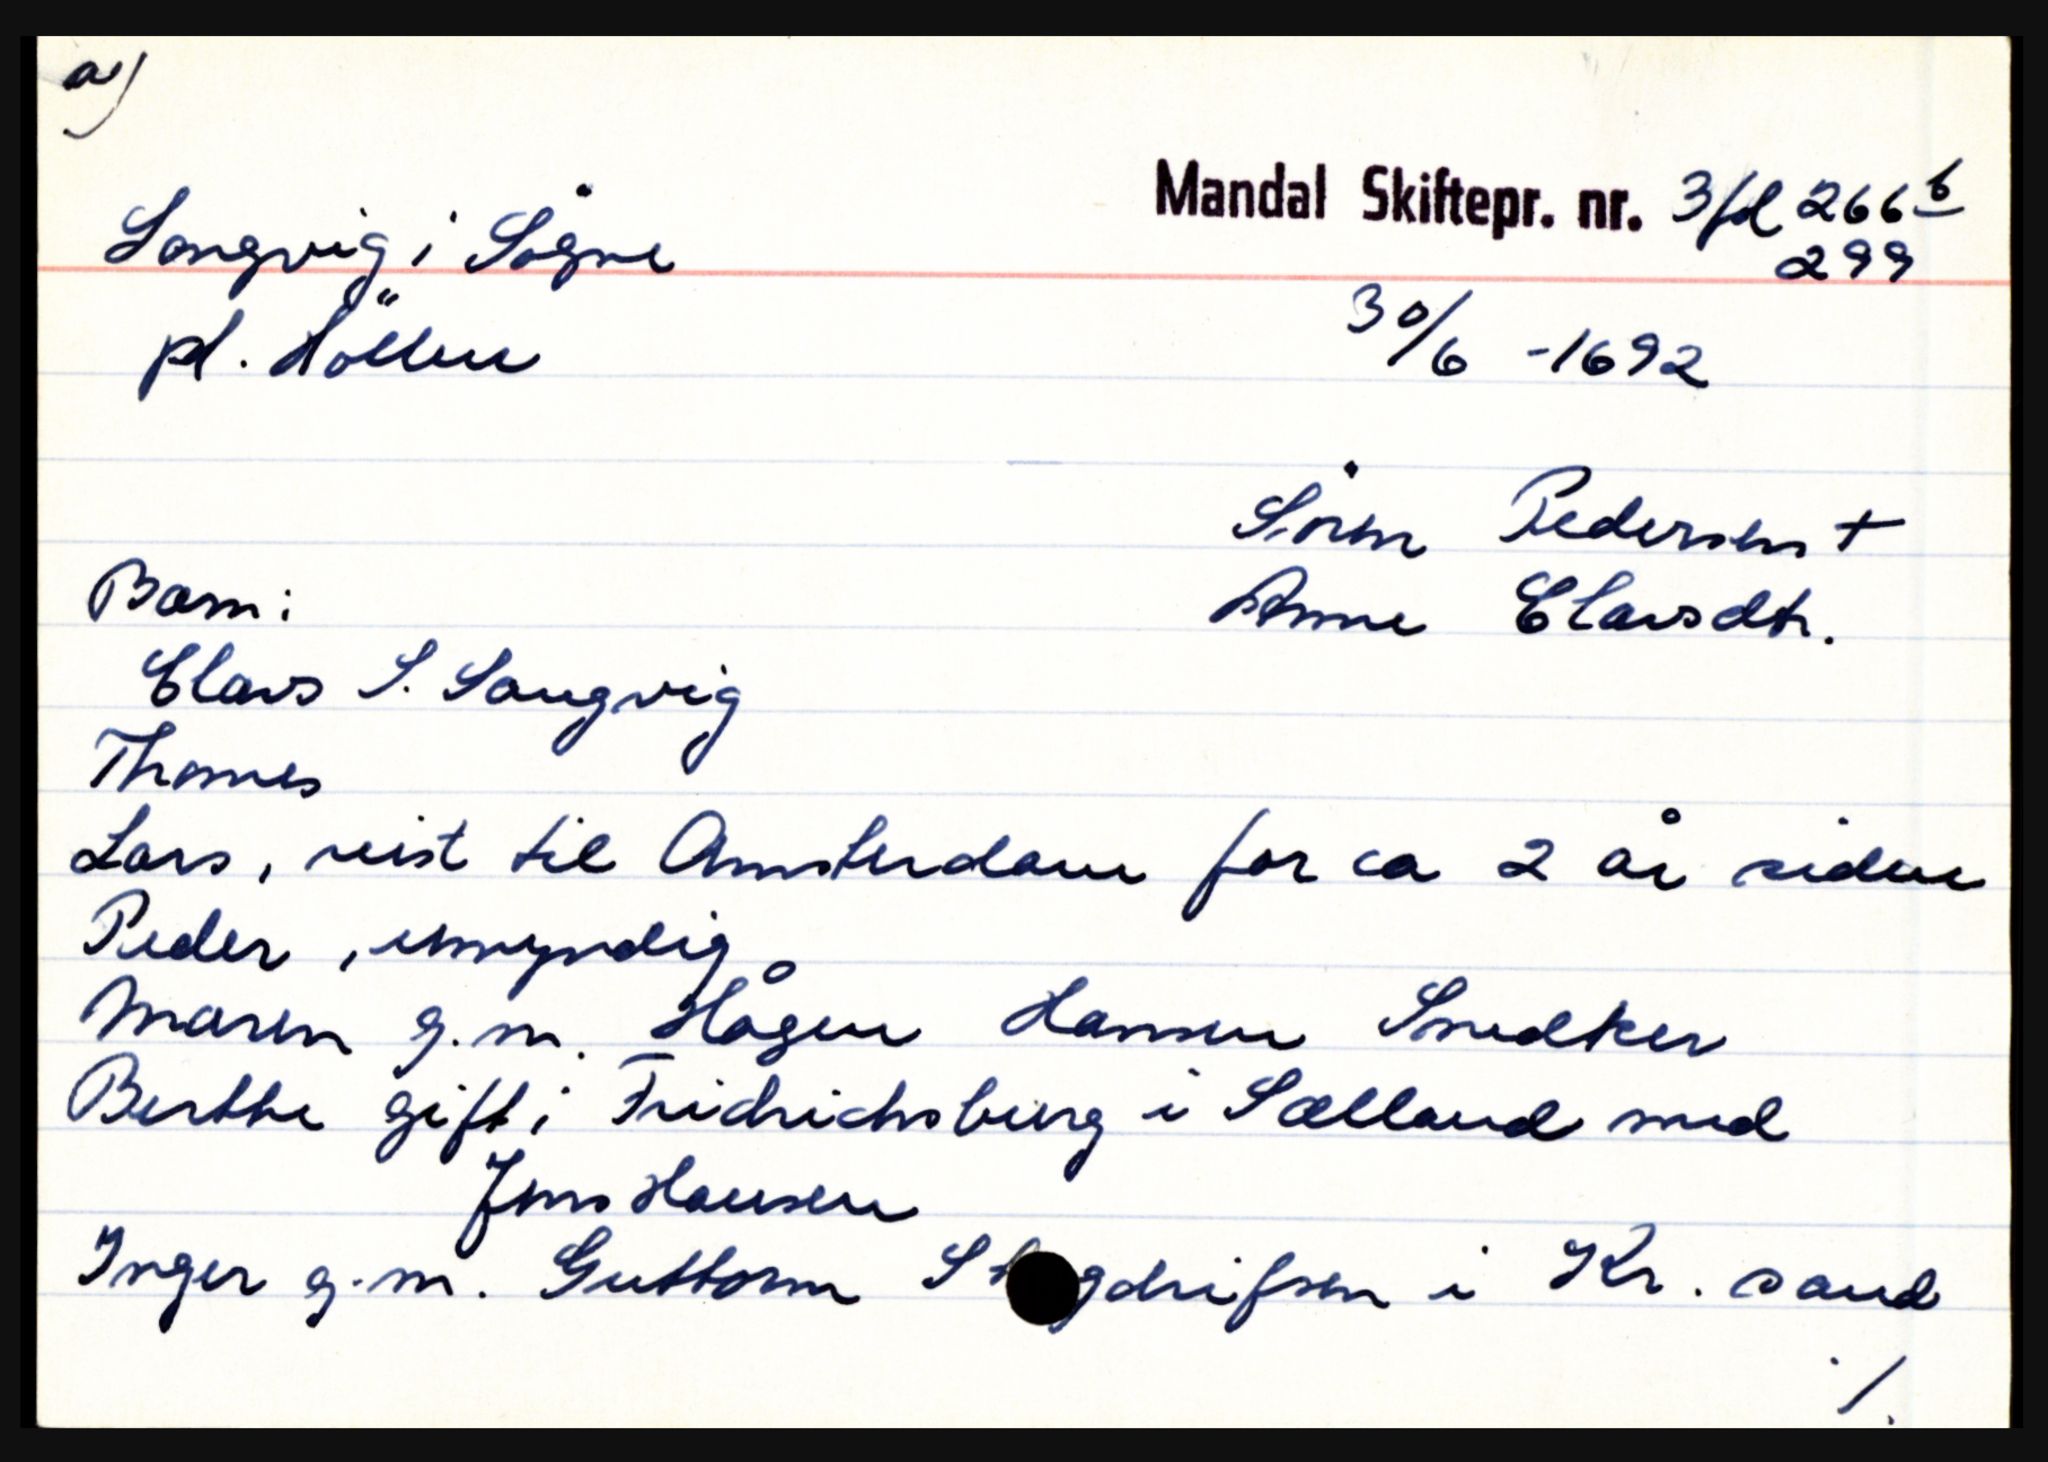 a)
Mandal Skiftepr. nr. 3 fol 266 b
299
Songvig i Søgne
pl. Höllen
30/6 - 1692
Sören Pedersen +
Anne Clavsdtr.
Barn:
Clavs S. Songvig
Thomes
Lars, reist til Amsterdam for ca 2 år siden
Peder, umyndig
Maren g.m. Hågen Hansen Snedker
Berthe gift i Fridrichsburg i Sælland med
Jens Hansen
Inger g.m. Guttorm i Kr. sand
./.